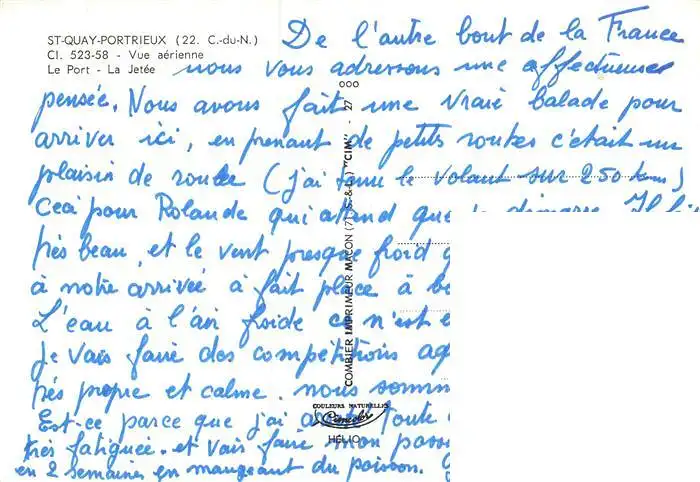 ST-QUAY-PORTRIEUX (22. C.-du-N.)
Cl. 523-58 - Vue aérienne
Le Port - La Jetée
De l'autre bout de la France
nous vous adressons une affectueuse
pensée. Nous avons fait une vraie balade pour
arriver ici, en prenant de petits routes c'était un
plaisir de rouler (j'ai tenu le volant sur 250 kms)
Ceci pour Rolande qui attend que je démarre. Il fait
très beau, et le vent presque froid
à notre arrivée à fait place à
L'eau à l'air froide ce n'est
Je vais faire des compétitions
très propre et calme. nous
Est-ce parce que j'ai toute
très fatiguée. et vais faire mon
en 2 semaines en mangeant du poisson.
ooo
COMBIER IMPRIMEUR MACON (7) (S.-&-L.) "CIM" - 27
COULEURS NATURELLES
HELIO